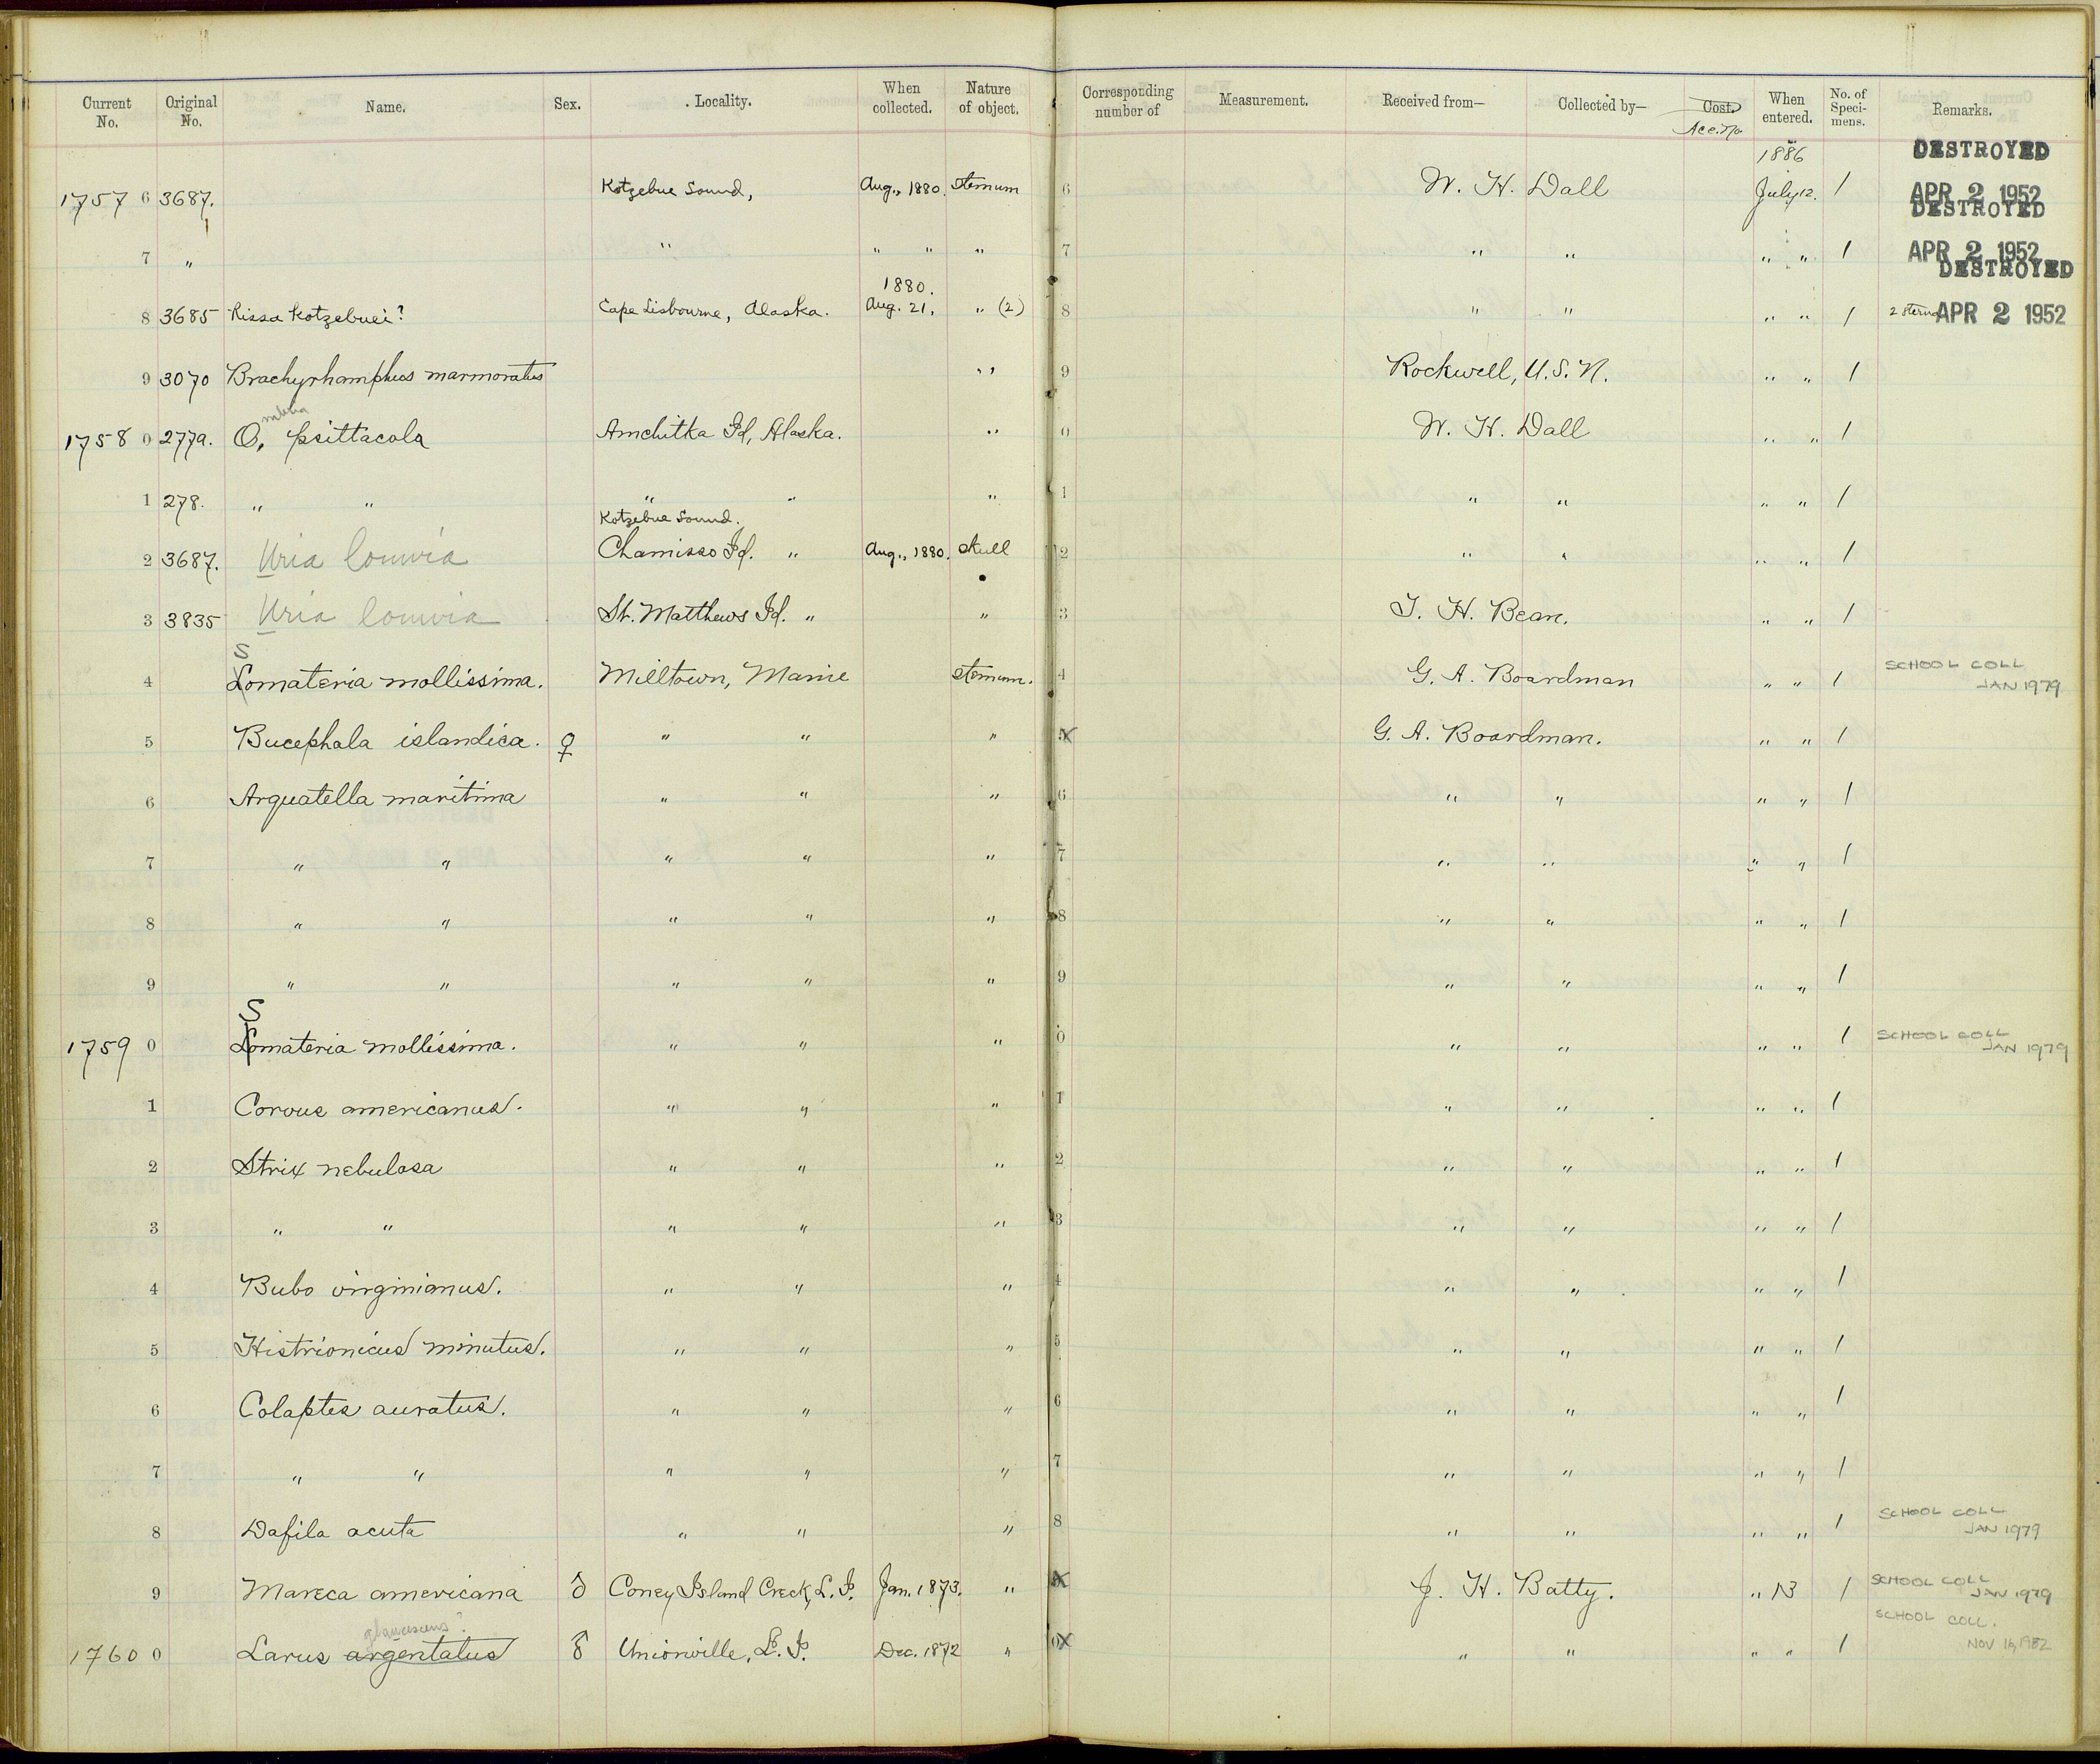 Current No. Original No. Name. Sex. Locality. When collected. Nature of object. Corresponding number of Measurement. Received from— Collected by— Cost. Acc. No. When entered. No. of Specimens. Remarks.
1886 DESTROYED
1757 6 3687. Kotzebue Sound, Aug., 1880. sternum 6 W. H. Dall July 12. 1 APR 2 1952
DESTROYED
7 " " " " " 7 " " " " 1 APR 2 1952
1880. DESTROYED
8 3685 Rissa Kotzebuei? Cape Lisbourne, Alaska. Aug. 21. " (2) 8 " " " " 1 2 sterna APR 2 1952
9 3070 Brachyrhamphus marmoratus " 9 Rockwell, U.S.N. " " 1
1758 0 277a. O. psittacola Amchitka Id, Alaska. " 0 W. H. Dall " " 1
1 278. " " " " " 1 " " " " 1
Kotzebue Sound.
2 3687. Uria lomvia Chamisso Id. " Aug., 1880. skull 2 " " " " 1
3 3835 Uria lomvia St. Matthews Id. " " 3 T. H. Bean. " " 1
S
4 Lomateria mollissima. Milltown, Maine sternum. 4 G. A. Boardman " " 1 SCHOOL COLL JAN 1979
5 Bucephala islandica. ♀ " " " 5 X G. A. Boardman. " " 1
6 Arquatella maritima " " " 6 " " " " 1
7 " " " " " 7 " " " " 1
8 " " " " " 8 " " " " 1
9 " " " " " 9 " " " " 1
S
1759 0 Lomateria mollissima. " " " 0 " " " " 1 SCHOOL COLL JAN 1979
1 Corvus americanus. " " " 1 " " " " 1
2 Strix nebulosa " " " 2 " " " " 1
3 " " " " " 3 " " " " 1
4 Bubo virginianus. " " " 4 " " " " 1
5 Histrionicus minutus. " " " 5 " " " " 1
6 Colaptes auratus. " " " 6 " " " " 1
7 " " " " " 7 " " " " 1
8 Dafila acuta " " " 8 " " " " 1 SCHOOL COLL JAN 1979
9 Mareca americana ♂ Coney Island Creek, L. I. Jan. 1873. " X J. H. Batty. " 13 1 SCHOOL COLL JAN 1979
glaucescens? SCHOOL COLL.
1760 0 Larus argentatus ♂ Unionville, L. I. Dec. 1872 " 0 X " " " " 1 NOV 16, 1982